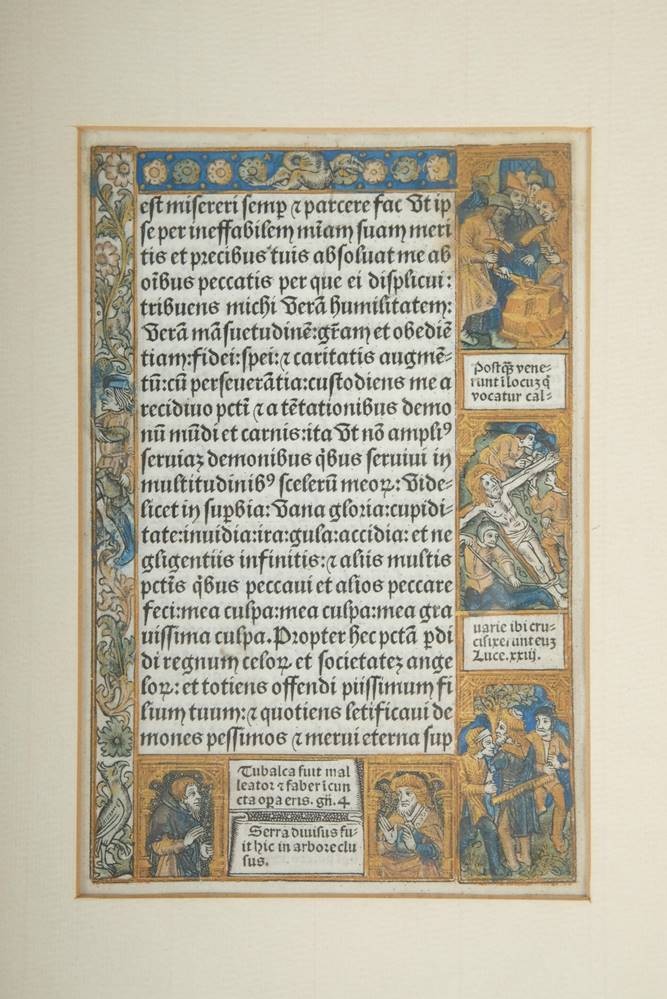 est misereri semp̱ ⁊ parcere fac Vt ip
se per ineffabilem mīam suam meri
tis et precibus tuis absoluat me ab
oībus peccatis per que ei displicui:
tribuens michi Verā humilitatem:
Verā māsuetudinē: grām et obediē
tiam: fidei: spei: ⁊ caritatis augmē-
tū: cū perseuerātia: custodiens me a
recidiuo pcti ⁊ a tētationibus demo
nū mūdi et carnis: ita Vt nō ampliꝰ
seruiaꝫ demonibus q̇bus seruiui in
multitudinibꝰ scelerū meoꝝ: Vide-
licet in suꝑbia: Vana gloria: cupidi-
tate: inuidia: ira: gula: accidia: et ne
gligentiis infinitis: ⁊ aliis multis
pctīs q̇bus peccaui et alios peccare
feci: mea culpa: mea culpa: mea gra
uissima culpa. Propter hec pctā ꝑdi
di regnum celoꝝ et societateꝫ ange
loꝝ: et totiens offendi piissimum fi
lium tuum: ⁊ quotiens letificaui de
mones pessimos ⁊ merui eterna sup
Postq̄ꝫ vene-
runt ī locuꝫ q̄
vocatur cal-
uarie ibi cru-
cifixerunt euꝫ
Luce. xxiij.
Tubalca fuit mal
leator ⁊ faber ī cun
cta oꝑa eris. gn̄. 4
Serra diuisus fu-
it hic in arbore clu
sus.